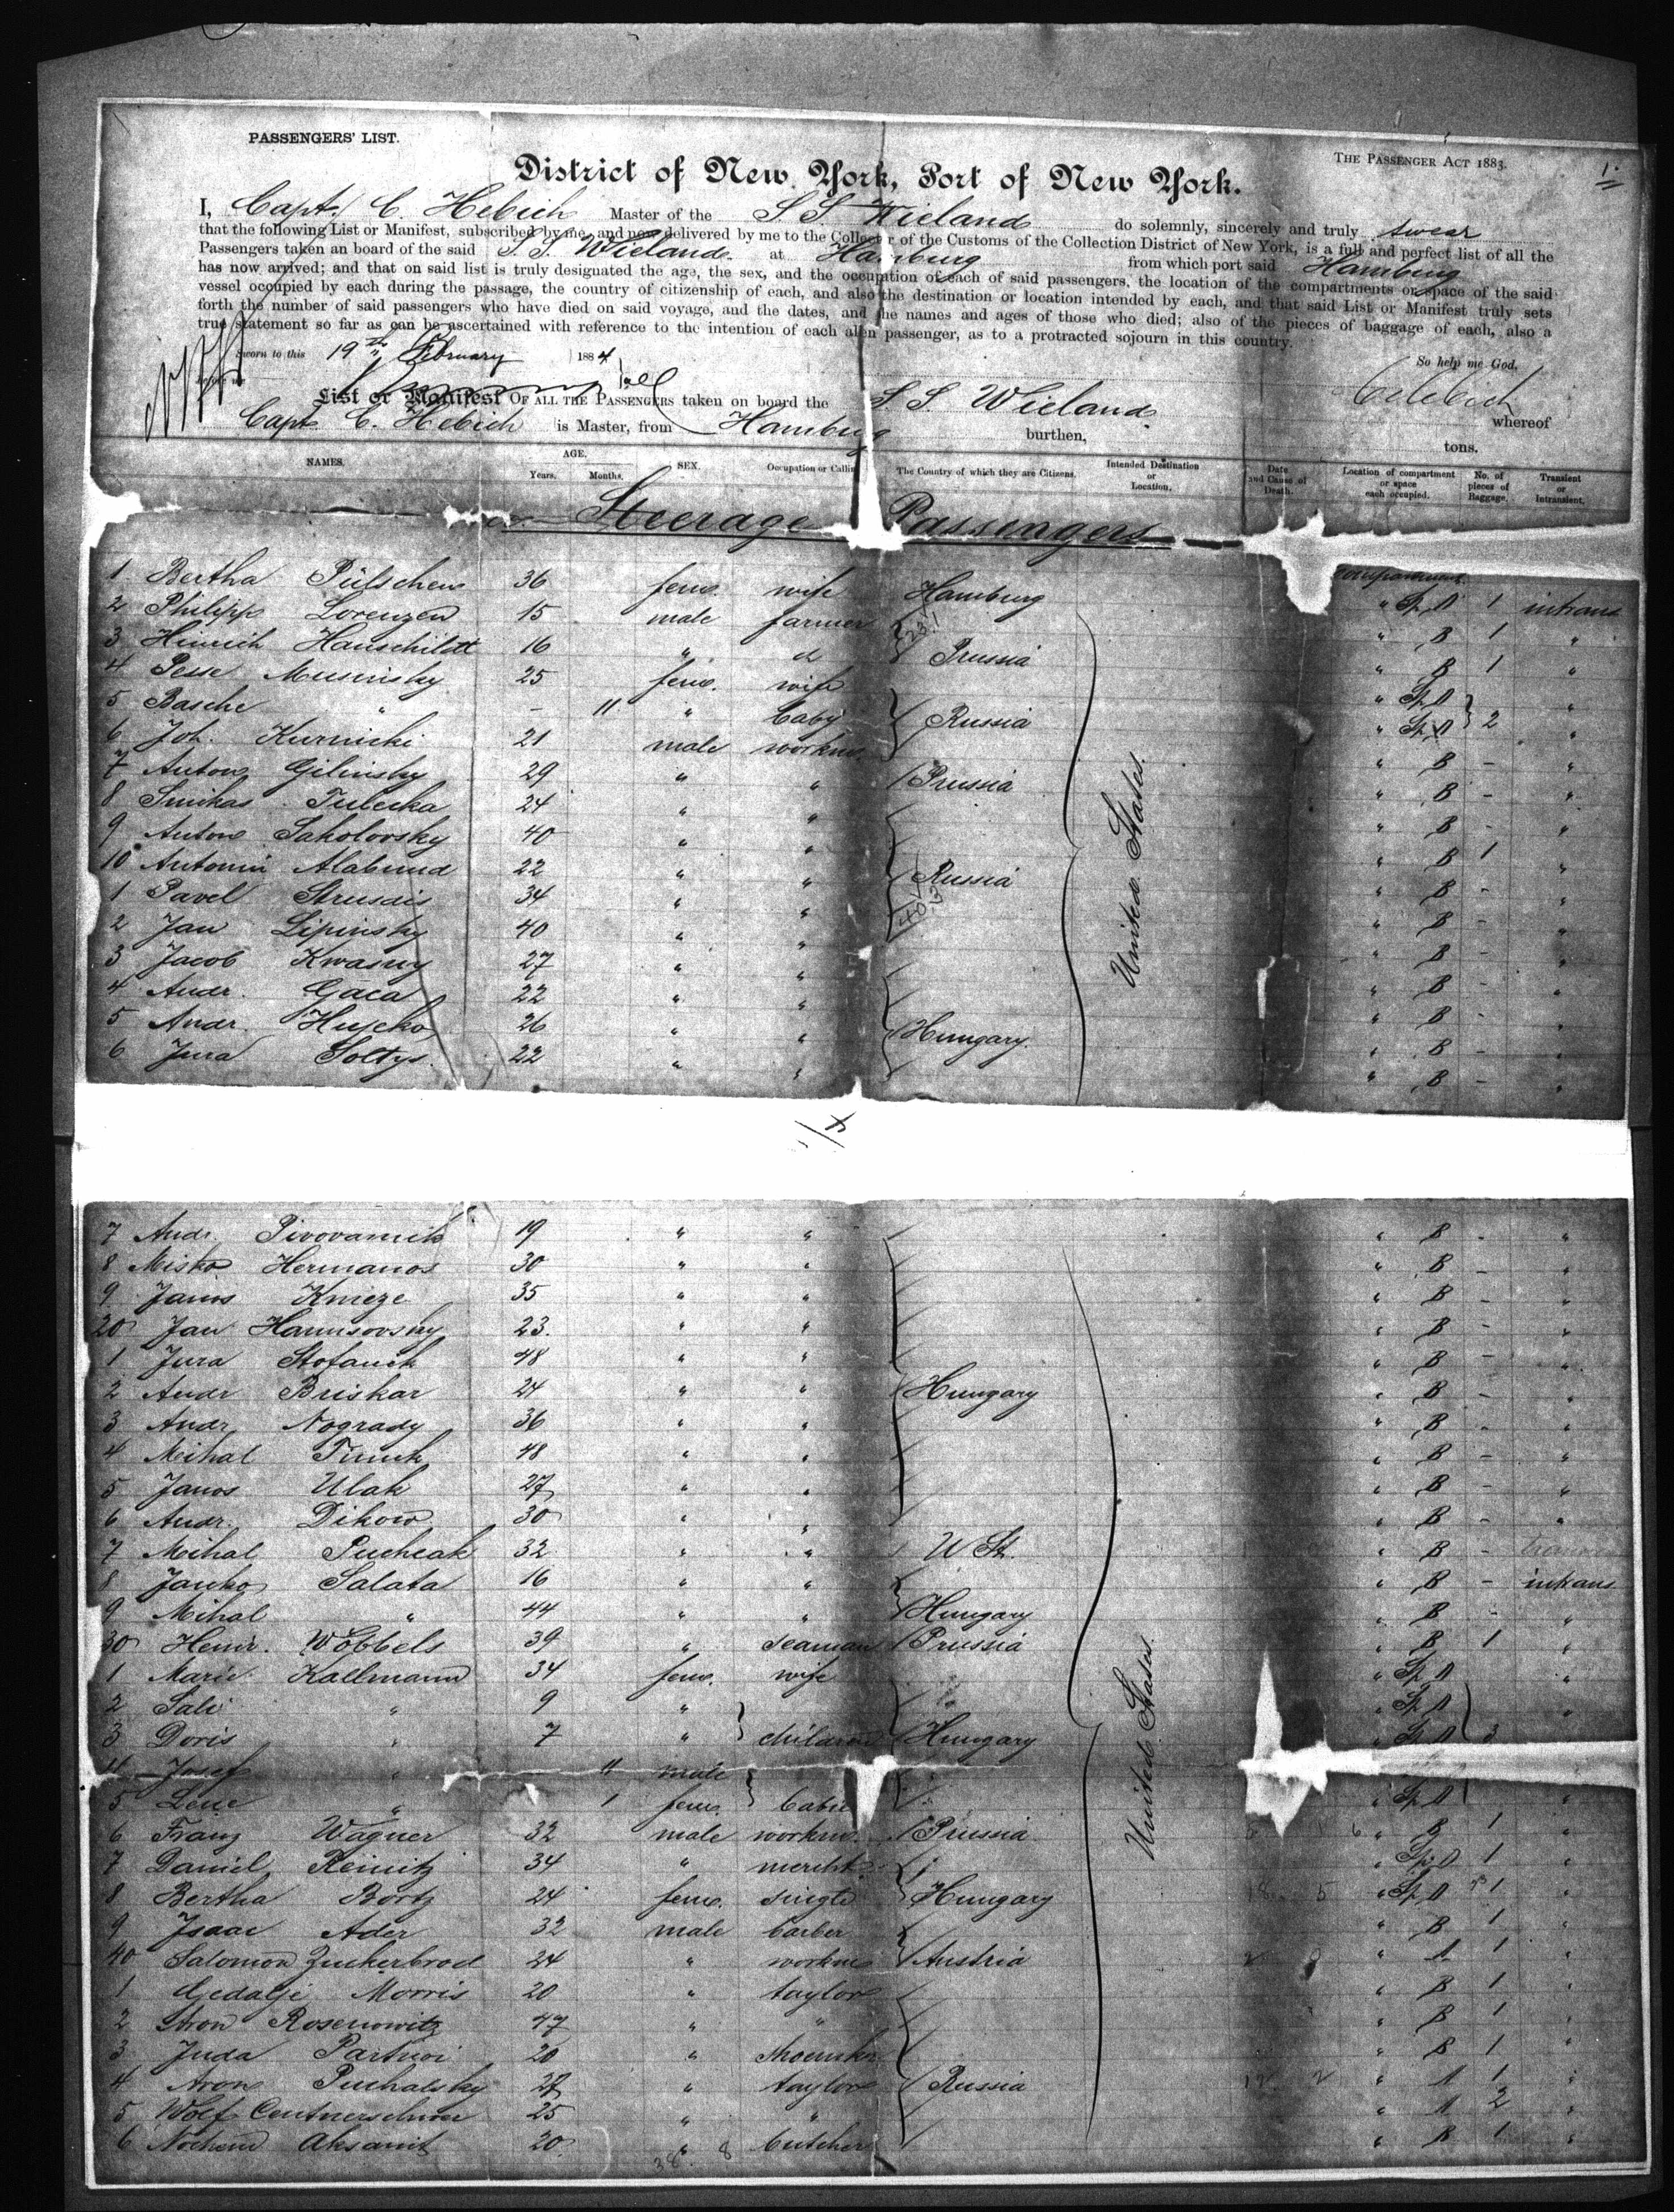 PASSENGERS' LIST.
THE PASSENGER ACT 1883.
1.
District of New York, Port of New York.
I, Capt. C. Hebich Master of the S S Wieland do solemnly, sincerely and truly swear
that the following List or Manifest, subscribed by me, and now delivered by me to the Collector of the Customs of the Collection District of New York, is a full and perfect list of all the
Passengers taken an board of the said S. S. Wieland at Hamburg from which port said Hamburg
has now arrived; and that on said list is truly designated the age, the sex, and the occupation of each of said passengers, the location of the compartments or space of the said
vessel occupied by each during the passage, the country of citizenship of each, and also the destination or location intended by each, and that said List or Manifest truly sets
forth the number of said passengers who have died on said voyage, and the dates, and the names and ages of those who died; also of the pieces of baggage of each, also a
true statement so far as can be ascertained with reference to the intention of each alien passenger, as to a protracted sojourn in this country.
Sworn to this 19th February 1884
So help me God,
List or Manifest OF ALL THE PASSENGERS taken on board the S. S. Wieland whereof
Capt. C. Hebich is Master, from Hamburg burthen, tons.
NAMES. AGE. Years. Months. SEX. Occupation or Calling The Country of which they are Citizens. Intended Destination or Location. Date and Cause of Death. Location of compartment or space each occupied. No. of pieces of Baggage. Transient or Intransient.
Steerage Passengers
1 Bertha 36 fem. wife Hamburg Sp. A 1 intrans
2 Philipp Lorenzen 15 male farmer B 1 "
3 Hinrich Hauschildt 16 " " Prussia B 1 "
4 Pesse Musinsky 25 fem. wife " Sp. A "
5 Basche " - 11 " baby Russia " Sp. A 2 "
6 Joh. Kurnicki 21 male workm. " B - "
7 Anton Gilinsky 29 " " Prussia " B - "
8 24 " " " B - "
9 Anton Sakolovsky 40 " " " B 1 "
10 Antonin 22 " " Russia " B - "
1 Pavel Strusais 34 " " " B - "
2 Jan Lipinsky 40 " " " B - "
3 Jacob Kwasny 27 " " " B - "
4 Andr. Gaca 22 " " " B - "
5 Andr. Hujcko 26 " " Hungary. " B - "
6 Jura Soltys 22 " " " B - "
United States.
7 Andr. 19 " " " B - "
8 Misko Hermanos 30 " " " B - "
9 Janos Kmeze 35 " " " B - "
20 Jan 23. " " " B - "
1 Jura Stofanik 48 " " " B - "
2 Andr Briskar 24 " " Hungary " B - "
3 Andr. Nogrady 36 " " " B - "
4 Mihal 48 " " " B - "
5 Janos Ulak 27 " " " B - "
6 Andr. Dikow 30 " " " B - "
7 Mihal Pucheak 32 " " U St. " B -
8 Janko Salata 16 " " " B - intrans
9 Mihal " 44 " " Hungary " B - "
30 Heinr. Wobbels 39 " seaman Prussia " B 1 "
1 Marie Kallmann 34 fem. wife " Sp. A "
2 Sali " 9 " " Sp. A "
3 Doris " 7 " children Hungary " Sp. A 3 "
4 Josef " 11 male
5 Lene " 1 fem. " Sp. A "
6 Franz Wagner 32 male workm. Prussia " B 1 "
7 Daniel Reinitz 34 " mercht. " Sp. A 1 "
8 Bertha Bortz 24 fem. single Hungary " Sp. A 1 "
9 Isaac Ader 32 male barber " B 1 "
40 Salomon Zuckerbrod 24 " workm Austria " A 1 "
1 Gedalje Morris 20 " taylor " B 1 "
2 Aron Rosenowitz 47 " " " B 1 "
3 Juda 20 " shoemker " B 1 "
4 Aron Puchalsky 27 " taylor Russia " A 1 "
5 Wolf Centnerschwer 25 " " " A 2 "
6 Nochem Aksamit 20 " butcher " B 1 "
United States.